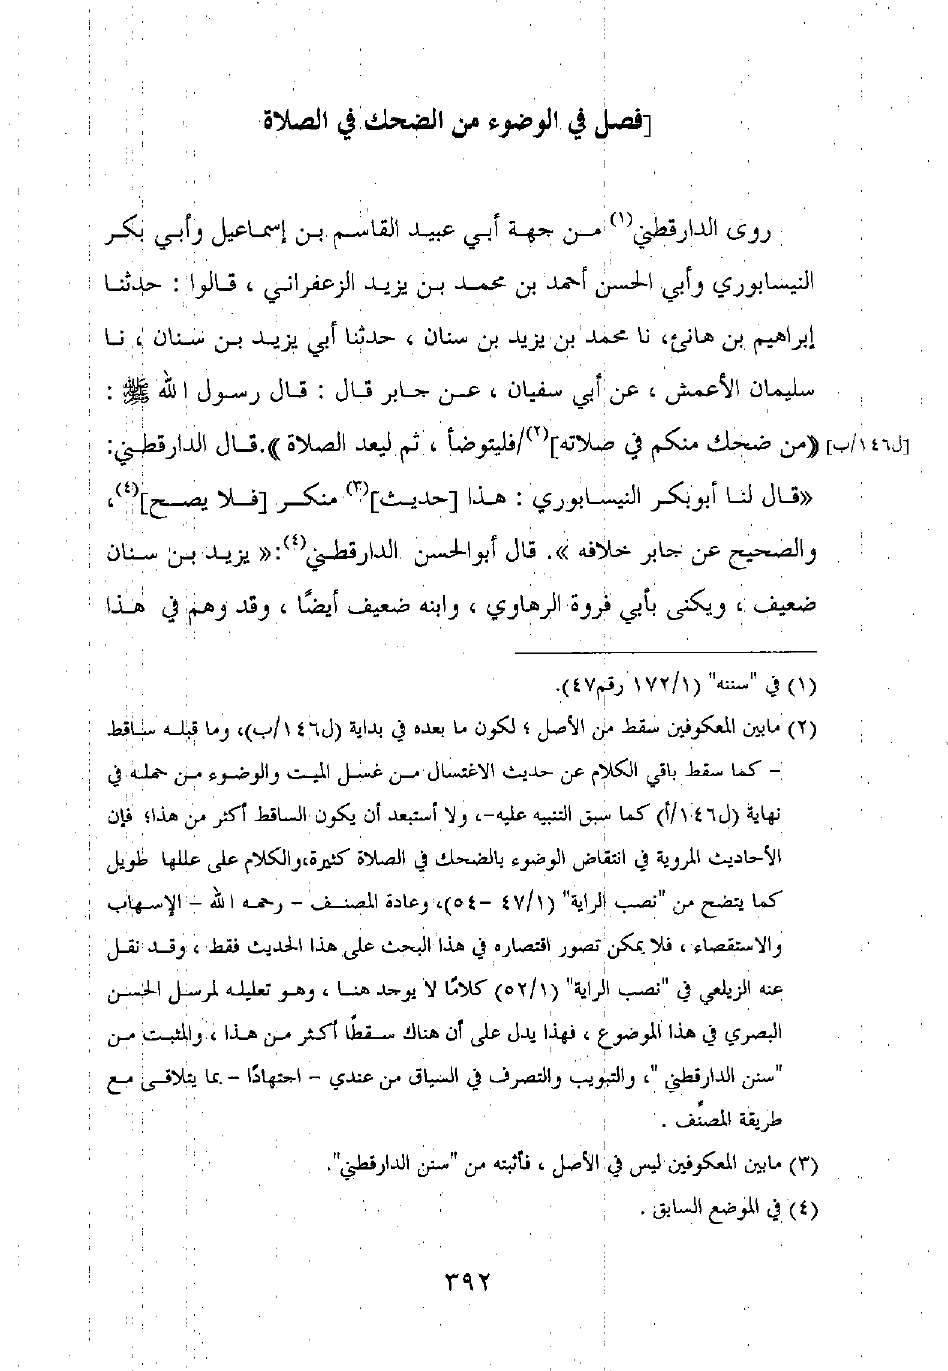 [فصل في الوضوء من الضحك في الصلاة
روى الدارقطني(١) من جهة أبي عبيد القاسم بن إسماعيل وأبي بكر
النيسابوري وأبي الحسن أحمد بن محمد بن يزيد الزعفراني ، قالوا : حدثنا
إبراهيم بن هانئ، نا محمد بن يزيد بن سنان ، حدثنا أبي يزيد بن سنان ، نا
سليمان الأعمش ، عن أبي سفيان ، عن جابر قال : قال رسول الله ﷺ :
[ل١٤٦/ب] «من ضحك منكم في صلاته](٢)/فليتوضأ ، ثم ليعد الصلاة ».قال الدارقطني:
«قال لنا أبوبكر النيسابوري : هذا [حديث](٣) منكر [فلا يصح](٤)،
والصحيح عن جابر خلافه ». قال أبوالحسن الدارقطني(٤):« يزيد بن سنان
ضعيف ، ويكنى بأبي فروة الرهاوي ، وابنه ضعيف أيضًا ، وقد وهم في هذا
(١) في "سننه" (١٧٢/١ رقم٤٧).
(٢) مابين المعكوفين سقط من الأصل ؛ لكون ما بعده في بداية (ل١٤٦/ب)، وما قبله ساقط
- كما سقط باقي الكلام عن حديث الاغتسال من غسل الميت والوضوء من حمله في
نهاية (ل١٤٦/أ) كما سبق التنبيه عليه-، ولا أستبعد أن يكون الساقط أكثر من هذا؛ فإن
الأحاديث المروية في انتقاض الوضوء بالضحك في الصلاة كثيرة،والكلام على عللها طويل
كما يتضح من "نصب الراية" (٤٧/١ -٥٤)، وعادة المصنف - رحمه الله - الإسهاب
والاستقصاء ، فلا يمكن تصور اقتصاره في هذا البحث على هذا الحديث فقط ، وقد نقل
عنه الزيلعي في "نصب الراية" (٥٢/١) كلامًا لا يوجد هنا ، وهو تعليله لمرسل الحسن
البصري في هذا الموضوع ، فهذا يدل على أن هناك سقطًا أكثر من هذا ، والمثبت من
"سنن الدارقطني "، والتبويب والتصرف في السياق من عندي - اجتهادًا - بما يتلاقى مع
طريقة المصنِّف .
(٣) مابين المعكوفين ليس في الأصل ، فأثبته من "سنن الدارقطني".
(٤) في الموضع السابق .
٣٩٢